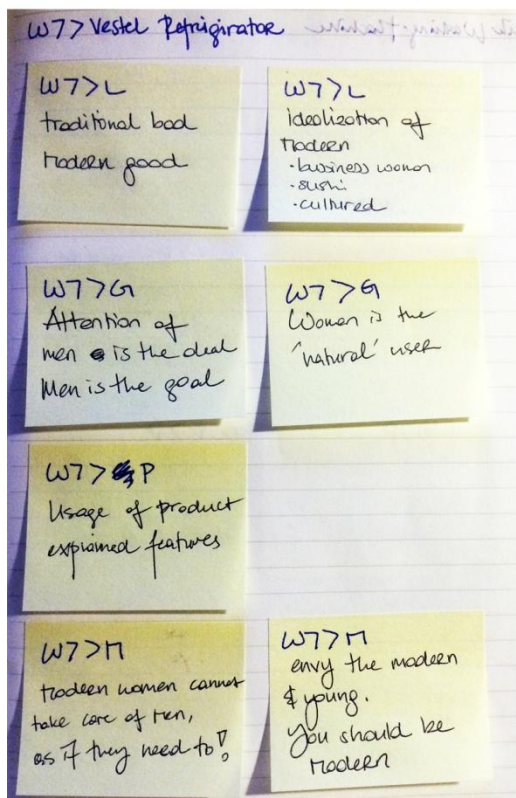 W7 > Vestel Refrigirator
W7 > L
traditional bad
Modern good
W7 > L
idealization of
Modern
· business woman
· sushi
· cultured
W7 > G
Attention of
men is the deal
Men is the goal
W7 > G
Woman is the
'natural' user
W7 > P
Usage of product
explained features
W7 > M
Modern women cannot
take care of Men,
as if they need to!
W7 > M
envy the modern
& young.
You should be
Modern